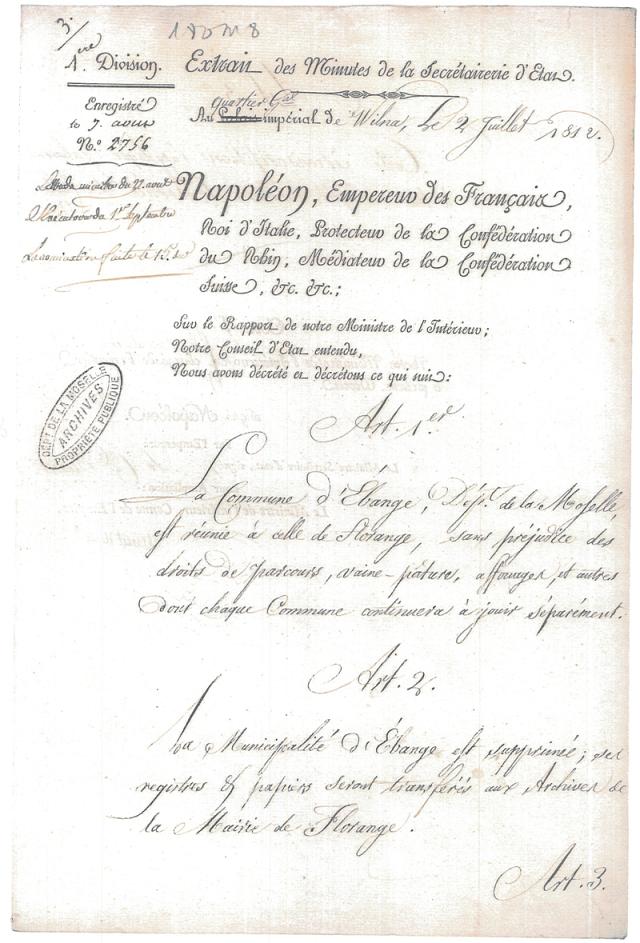 3.
1ere Division.
180 M 8
Extrait des Minutes de la Secrétairerie d'Etat.
Enregistré
le 7. aout
N.º 2756
quartier Gal
Au Palais impérial de Wilna, Le 2 Juillet 1812.
du 22. aout
du 1er Septembre
faite le
Napoléon, Empereur des Français,
Roi d'Italie, Protecteur de la Confédération
du Rhin, Médiateur de la Confédération
Suisse, &c. &c.;
Sur le Rapport de notre Ministre de l'Intérieur;
Notre Conseil d'Etat entendu,
Nous avons décrété et décrétons ce qui suit:
DÉPT DE LA MOSELLE
ARCHIVES
PROPRIÉTÉ PUBLIQUE
Art. 1.er
La Commune d'Ebange, Dépt. de la Moselle,
est réunie à celle de Florange, sans préjudice des
droits de parcours, vaine-pâture, affouages, et autres
dont chaque Commune continuera à jouir séparément.
Art. 2.
La Municipalité d'Ébange est supprimée; ses
registres & papiers seront transférés aux Archives de
la Mairie de Florange.
Art. 3.